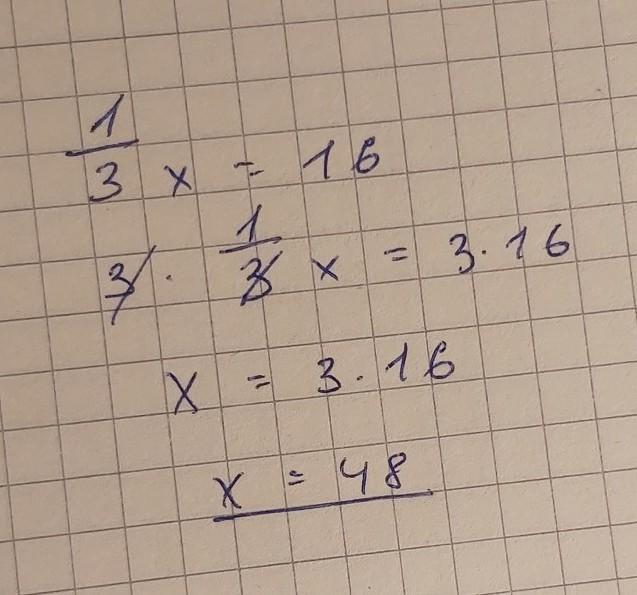 1/3 x = 16
3 · 1/3 x = 3 · 16
x = 3 · 16
x = 48